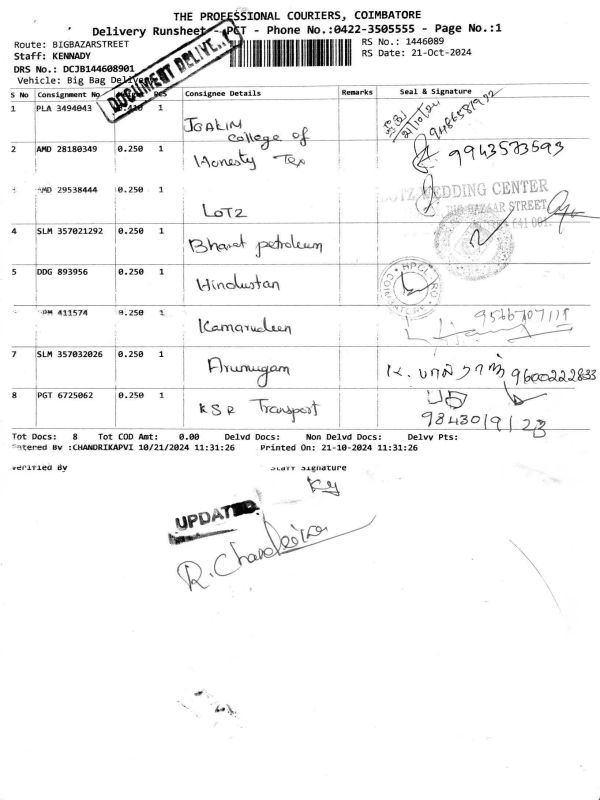 THE PROFESSIONAL COURIERS, COIMBATORE
Delivery Runsheet - PGT - Phone No.:0422-3505555 - Page No.:1
Route: BIGBAZARSTREET
RS No.: 1446089
Staff: KENNADY
RS Date: 21-Oct-2024
DRS No.: DCJB144608901
Vehicle: Big Bag Delivery
DOCUMENT DELIVE
S No Consignment No Pcs Consignee Details Remarks Seal & Signature
1 PLA 3494043 1 JOAKIM college of 21/10/24 9486581922
2 AMD 28180349 0.250 1 Honesty Tex 9943573593
AMD 29538444 0.250 1 LOTZ
WEDDING CENTER
BIG BAZAAR STREET
641 001.
4 SLM 357021292 0.250 1 Bharat petroleum
5 DDG 893956 0.250 1 Hindustan
HPCL
COIMBATORE
411574 0.250 1 Kamarudeen 9566707118
7 SLM 357032026 0.250 1 Arumugam K. பால்ராஜ் 9600222833
8 PGT 6725062 0.250 1 KSR Transport
9843019123
Tot Docs: 8 Tot COD Amt: 0.00 Delvd Docs: Non Delvd Docs: Delvy Pts:
Entered By :CHANDRIKAPVI 10/21/2024 11:31:26 Printed On: 21-10-2024 11:31:26
Verified By Staff Signature
UPDATED
R. Chandrika